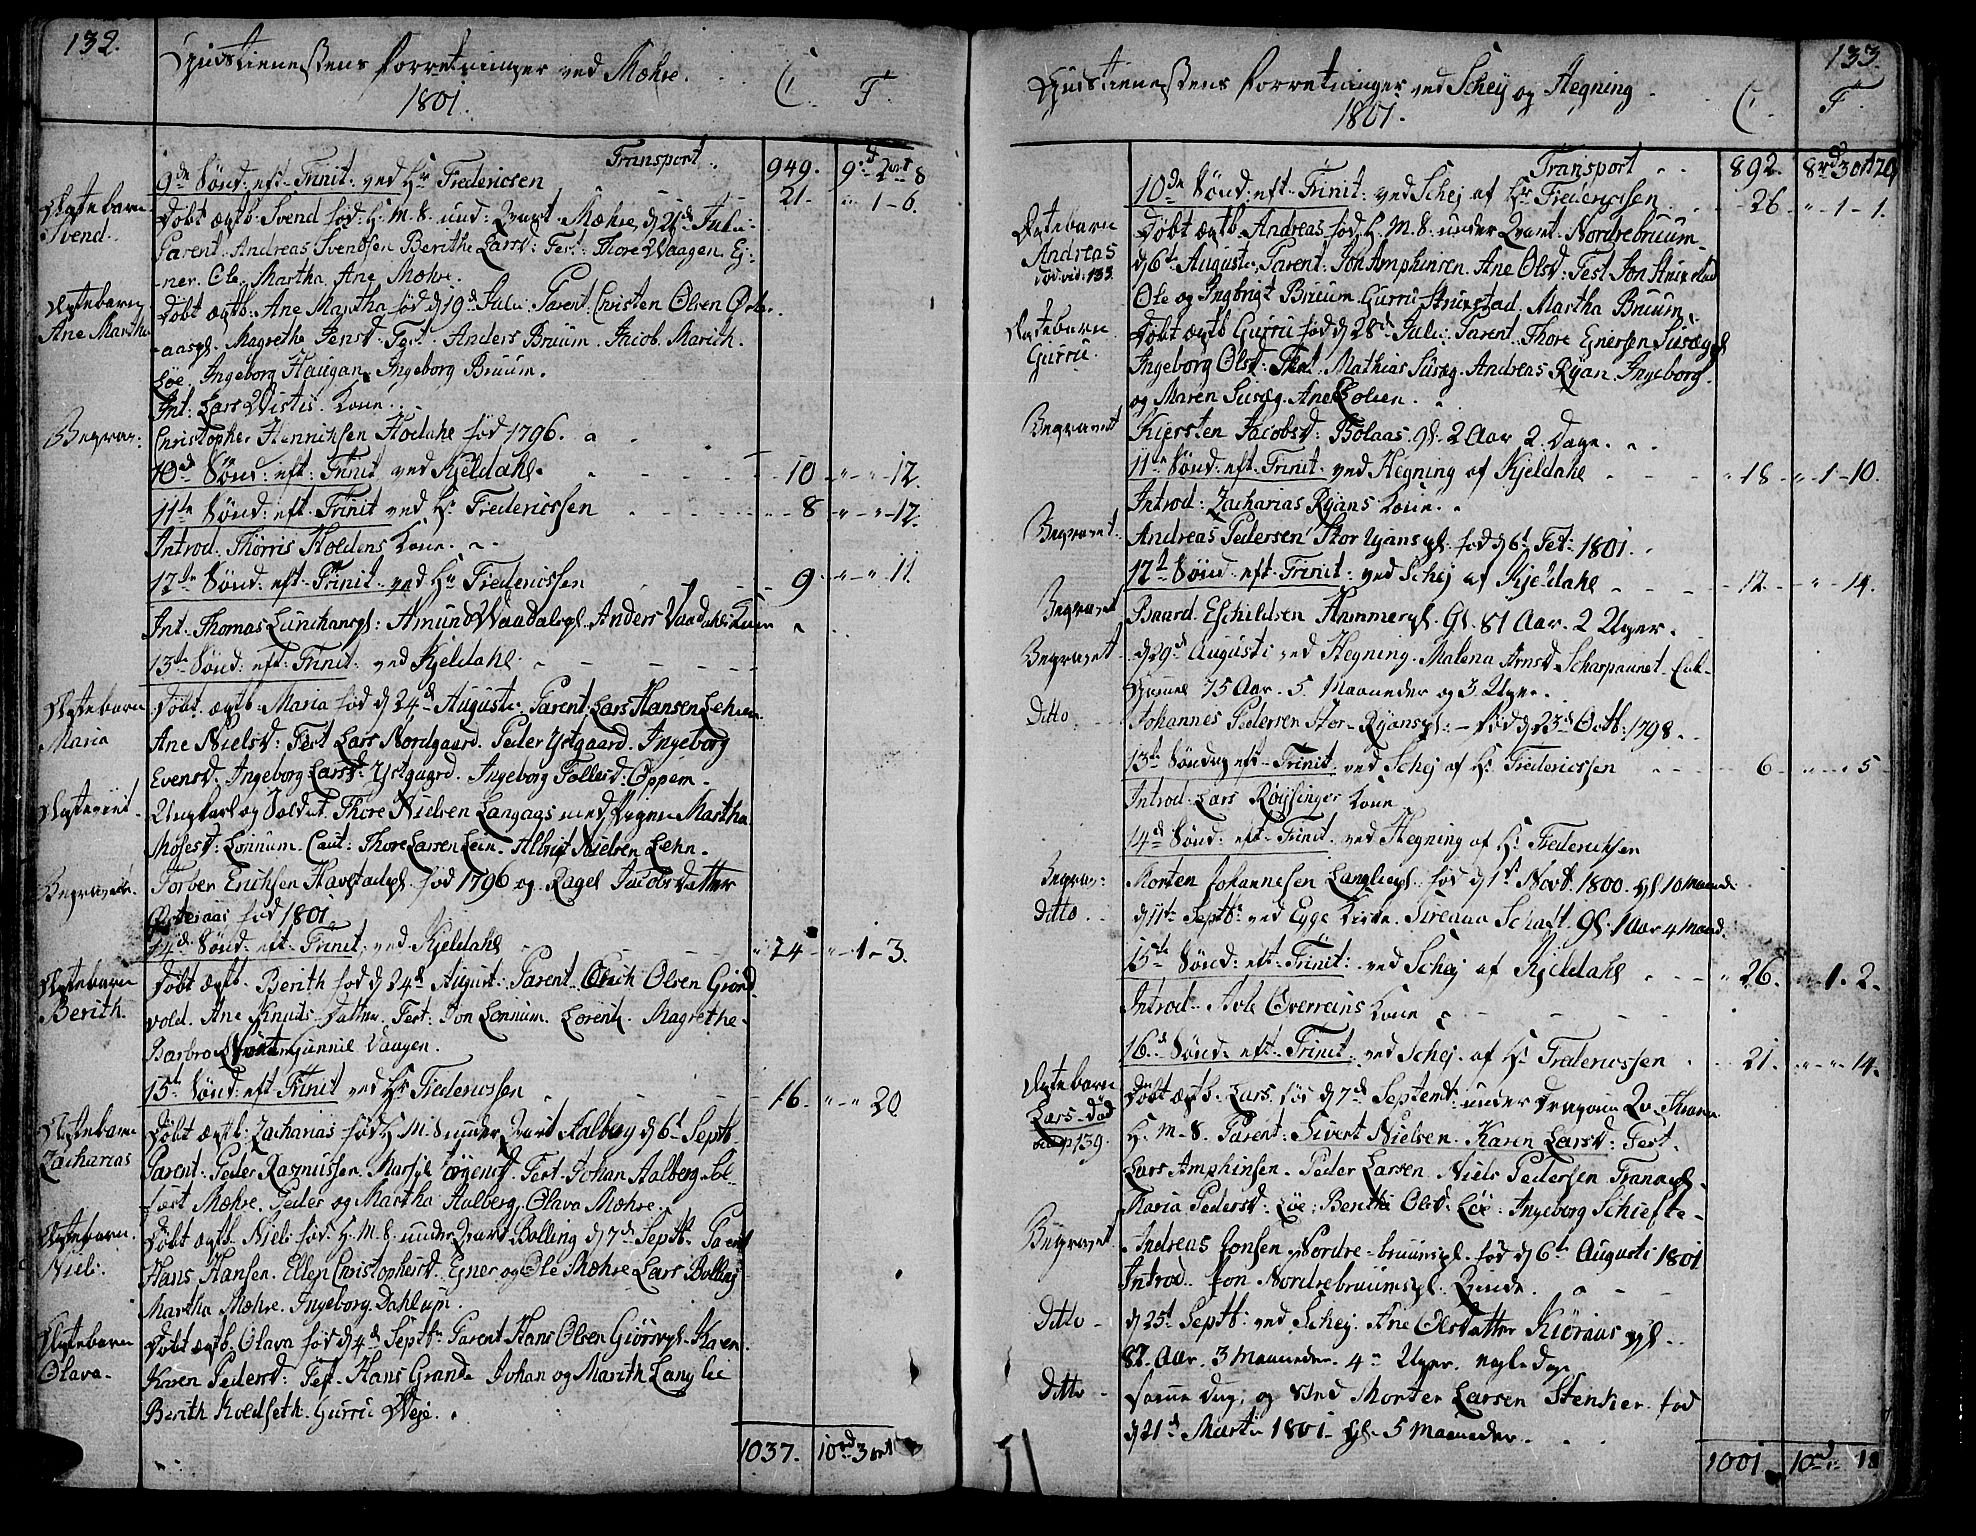 132.
Gudstienestens Forretninger ved Mæhre.
1801.
C. F.
Transport. 949. 9rd 2ort 8
9de Sönd: eft. Trinit: ved Hr Fredericsen 21. " 1-6.
Ægtebarn Svend.
Döbt ægtb: Svend föd: H. M. S. und: Qvart. Mæhre, d 21d Juli:
Parent. Andreas Svendsen Berithe Larsd: Test: Thore Waagen. Ej-
-ner. Ole. Martha. Ane Mæhre.
Ægtebarn Ane Martha
Döbt ægtb: Ane Martha föd d 19d Juli: Parent. Christen Olsen Öster-
-aaspl. Magrethe Jensd: Test: Anders Bruum. Jacob. Marith.
Löe. Ingeborg Haugan. Ingeborg Bruum.
Int: Lars Wistis. Kone.
Begrav:
Christopher Henrichsen Hodahl föd 1796.
10de Sönd: eft: Trinit ved Kjeldahl. 10 " " 12.
11te Sönd: eft. Trinit ved Hr Fredericssen 8 " " 12.
Introd. Thörris Holdens Kone.
12te Sönd: eft. Trinit. ved Hr Fredericssen 9 " " 11.
Int. Thomas Lunchanspl: Amund Waadalspl. Anders Vaadahls Koner
13te Sönd: eft: Trinit: ved Kjeldahl.
Ægtebarn Maria
Döbt ægtb. Maria föd d 24d Augusti. Parent. Lars Hansen Lehn
Ane Nielsd: Test Lars Nordgaard. Peder Ystgaard. Ingeborg
Evensd. Ingeborg Larsd: Ystgaard. Ingeborg Tollefsd: Oppem.
Ægteviet.
Ungkarl og Soldat. Thore Nielsen Langaas med Pigen Martha
Mosesd: Lönnum. Caut: Thore Larsen Lein. Albrigt Nielsen Lehn.
Begravet.
Torber Erichsen Havstadpl. föd 1796 og Ragel Jacobsdatter
Österaas föd 1801.
14de Sönd: eft. Trinit. ved Kjeldahl 24 " 1-3.
Ægtebarn Berith.
Döbt ægtb. Berith föd d 24d August: Parent. Erich Olsen Grönd-
vold. Ane Knuds Datter. Test: Jon Lönnum. Lorentz. Magrethe.
Barbro Gunnil Vaagen.
15te Sönd: eft Trinit ved Hr Fredericssen 16. " " 20
Ægtebarn Zacharias
Döbt ægtb: Zacharias föd H. M. S under Qvart Aalberg d 6t Septb.
Parent: Peder Rasmussen. Marsil Jörgensd. Test. Johan Aalberg. Sol-
fast Mæhre. Peder og Martha Aalberg, Olava Mæhre.
Ægtebarn. Niels.
Döbt ægtb. Niels föd. H. M. S under Qvart Bölling d 7d Septb. Parent
Hans Hansen. Ellen Christophersd. Ejner og Ole Mæhre Lars Bölling
Martha Mæhre. Ingeborg Dahlum.
Ægtebarn Olava.
Döbt ægtb. Olava föd d 4d Septb. Parent Hans Olsen Giörvpl. Karen
Karen Pedersd: Test. Hans Grande Johan og Marith Langlie
Berith Koldseth. Gurru Weje.
1037. 10rd 3ort
133.
Gudstienestens Forretninger ved Schej og Hegning
1801.
C. F.
Transport 892. 8rd 3ort 20
10de Sönd: eft Trinit: ved Schej af Hr Fredericssen 26 " 1-1.
Ægtebarn Andreas död vid: 133.
Döbt ægtb. Andreas föd H. M. S. under Qvart. Nordrebruum.
d 6t Augusti. Parent: Jon Amphinsen. Ane Olsd: Test Jon Struxstad
Ole og Ingbrigt Bruum. Gurru Struxstad. Martha Bruum.
Ægtebarn Gurru.
Döbt ægtb Gurru föd d 28d Juli: Parent Thore Enersen Susægpl
Ingeborg Olsd: Test. Mathias Susæg. Andreas Ryan Ingeborg.
og Maren Susæg. Ane
Begravet
Kiersten Jacobsd: Bolaas. gl. 2 Aar 2. Dage.
11te Sönd: eft. Trinit. ved Hegning af Kjeldahl 18 " 1-10.
Introd: Zacharias Ryans Kone.
Begravet.
Andreas Pedersen Stor Ryanspl. föd d 6t Feb: 1801.
12te Sönd. eft. Trinit: ved Schej af Kjeldahl 12. " 14.
Begravet
Baard. Eschildsen Hammerpl. Gl. 81 Aar. 2 Uger.
Begravet
d 29d Augusti ved Hegning. Malena Arnsd. Scharpaunet. Enk-
Gammel 75 Aar. 5. Maaneder og 3. Uger.
Ditto
Johannes Pedersen Stor-Ryanspl: - föd d 23d Octb: 1798.
13te Söndag eft Trinit. ved Schej af Hr Fredericssen 6 " " 5
Introd. Lars Röysinger Kone
14de Sönd. eft. Trinit. ved Hegning af Hr Fredericksen
Begrav:
Morten Johannesen Langliepl. föd d 1st Novb. 1800. gl 10 Maaned:
ditto.
d 11te Septb: ved Egge Kirke. Sirenna Schaft. Gl. 1 Aar 4 Maand.
15te Sönd: eft. Trinit: ved Schej af Kjeldahl 26. " 1. 2.
Introd. Avle Överreins Kone
16de Sönd. eft. Trinit. ved Schej. af Hr Fredericssen 21. " " 14.
Ægtebarn Lars. död pag 139.
Döbt ægtb. Lars. föd d 7d Septemb: under Dragoun
H. M-S. Parent: Sivert Nielsen. Karen Larsd: Test.
Lars Amphinsen. Peder Larsen. Niels Pedersen Tranaspl.
Maria Pedersd: Löe: Berithe Olsd: Löe: Ingeborg Schiefte-
Begravet.
Andreas Jonsen Nordre-bruumspl. föd d 6te Augusti 1801
Introd. Jon Nordrebruumspl. Qvinde.
Ditto
d 25t Septb: ved Schej. Ane Olsdatter Kiöraas gl.
82. Aar. 3 Maaneder. 4 Uger. nogle Dage
Ditto
Samme Dag, og Sted Morten Larsen Stenkier. föd
d 21d Marti 1801- gl. 5 Maaneder.
1001 10rd " 18